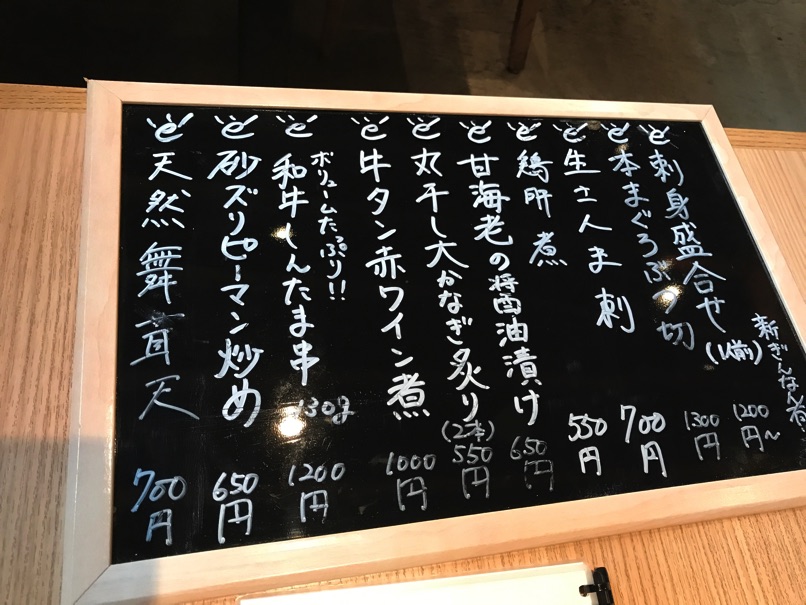 新ぎんなん有
刺身盛合せ(1人前) 1200円〜
本まぐろぶつ切 1300円
生さんま刺 700円
鶏肝煮 550円
甘海老の醤油漬け 650円
丸干し大かなぎ炙り(2本) 550円
牛タン赤ワイン煮 1000円
ボリュームたっぷり!!
和牛しんたま串 130g 1200円
砂ズリピーマン炒め 650円
天然舞茸天 700円